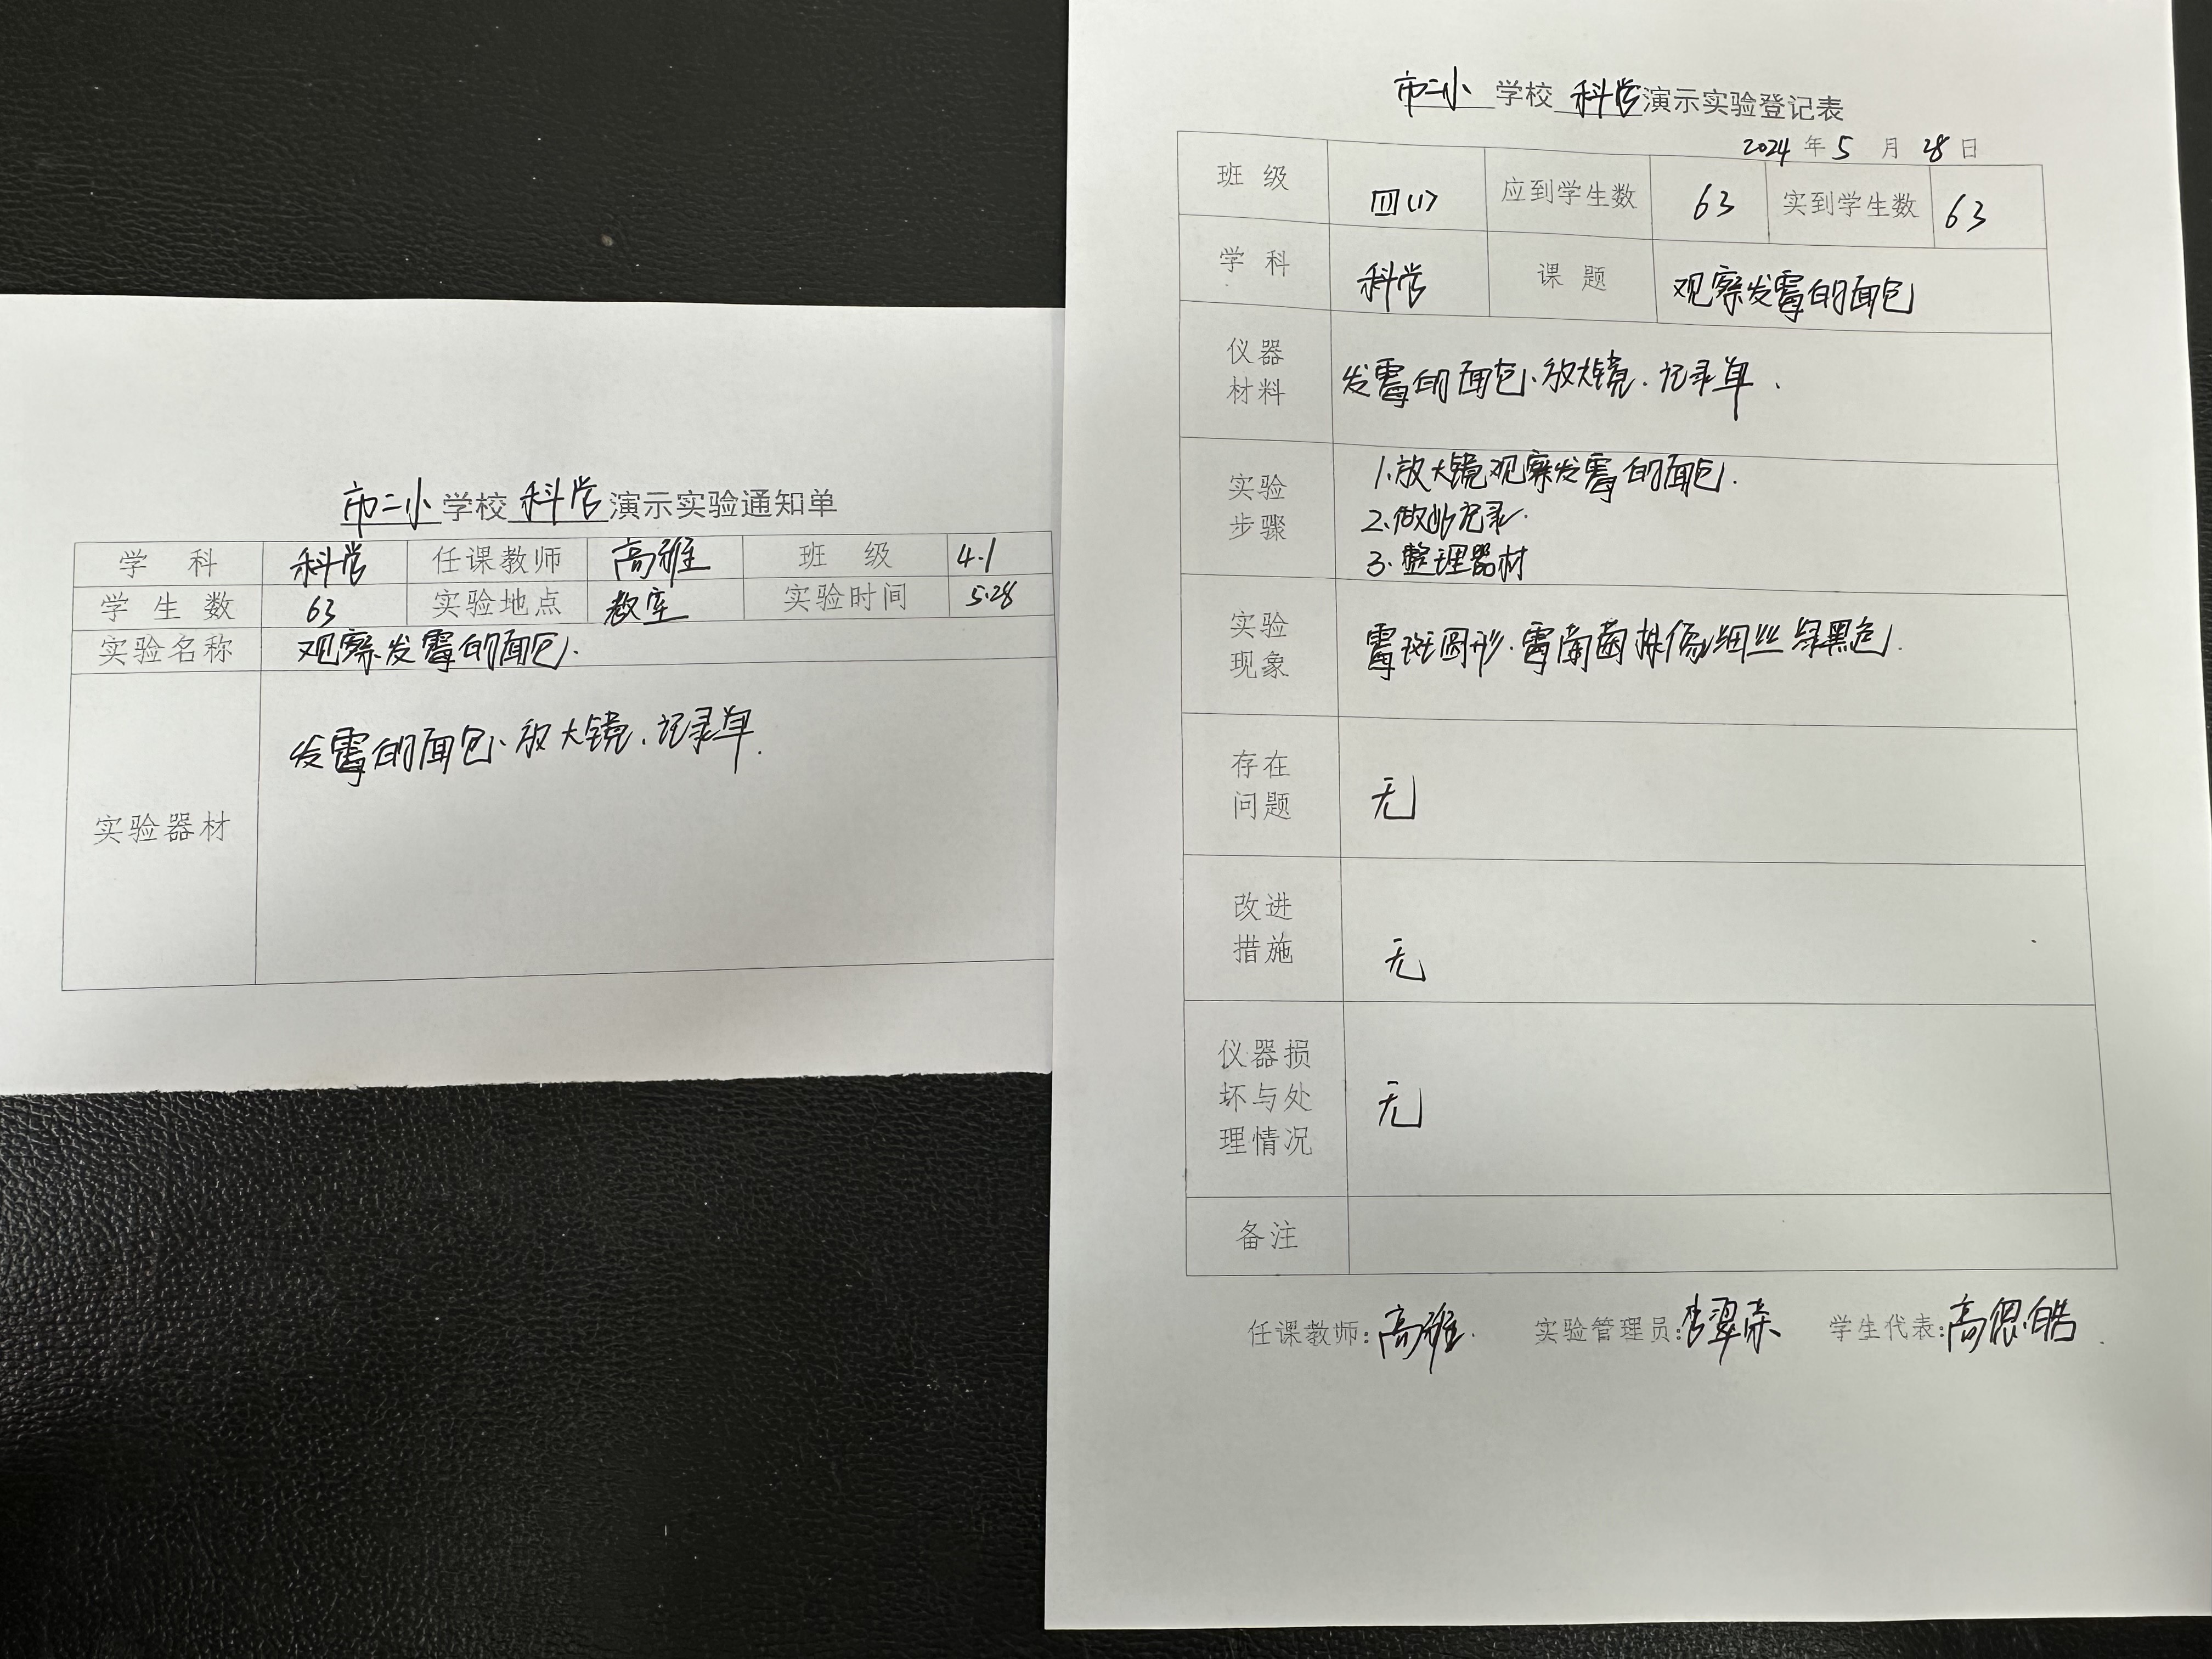 市二小学校科学演示实验通知单
学 科 科学 任课教师 高雅 班 级 4.1
学 生 数 63 实验地点 教室 实验时间 5.28
实验名称 观察发霉的面包.
实验器材 发霉的面包、放大镜、记录单.
市二小学校科学演示实验登记表
2024年5月28日
班 级 四(1) 应到学生数 63 实到学生数 63
学 科 科学 课 题 观察发霉的面包
仪器材料 发霉的面包、放大镜、记录单.
实验步骤 1.放大镜观察发霉的面包.
2.做好记录.
3.整理器材
实验现象 霉斑圆形.霉菌菌株像细丝绿黑色.
存在问题 无
改进措施 无
仪器损坏与处理情况 无
备注
任课教师:高雅. 实验管理员:李翠 学生代表:高皓